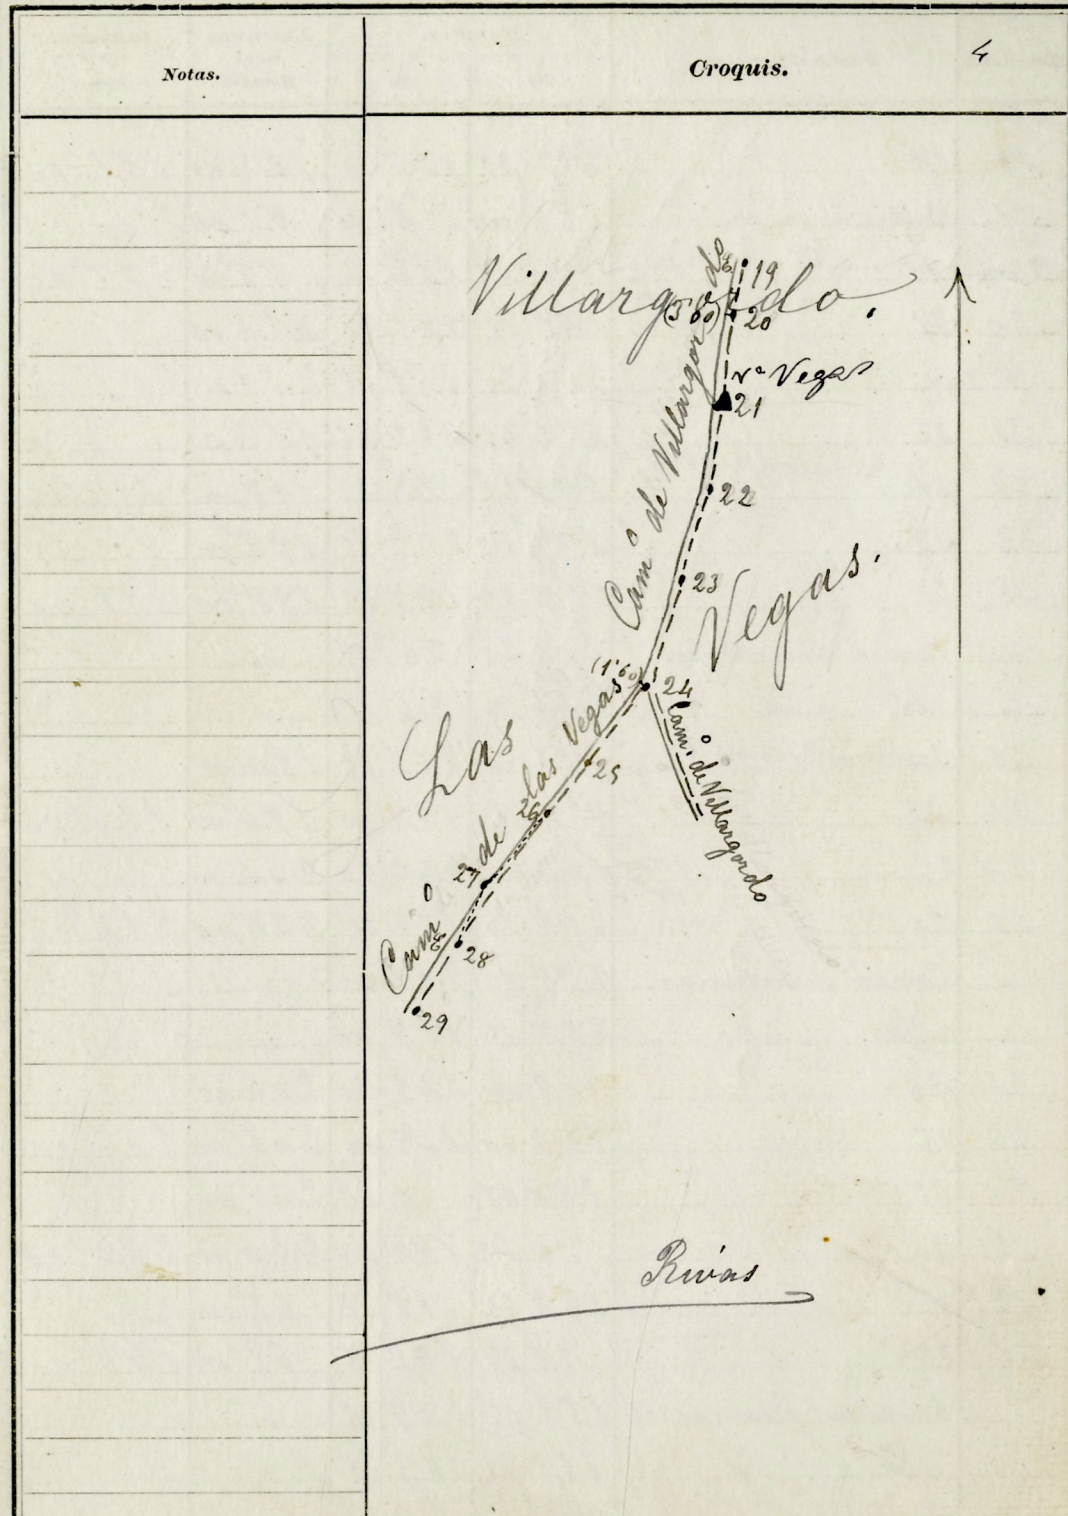 Notas.
Croquis.
4
Villargordo.
19
(3'60)
20
vª Vegas
21
Camº de Villargordo
22
23
Vegas.
(1'60)
24
Camº de Villargordo
Las
Camº de las Vegas
25
26
27
28
29
Rivas